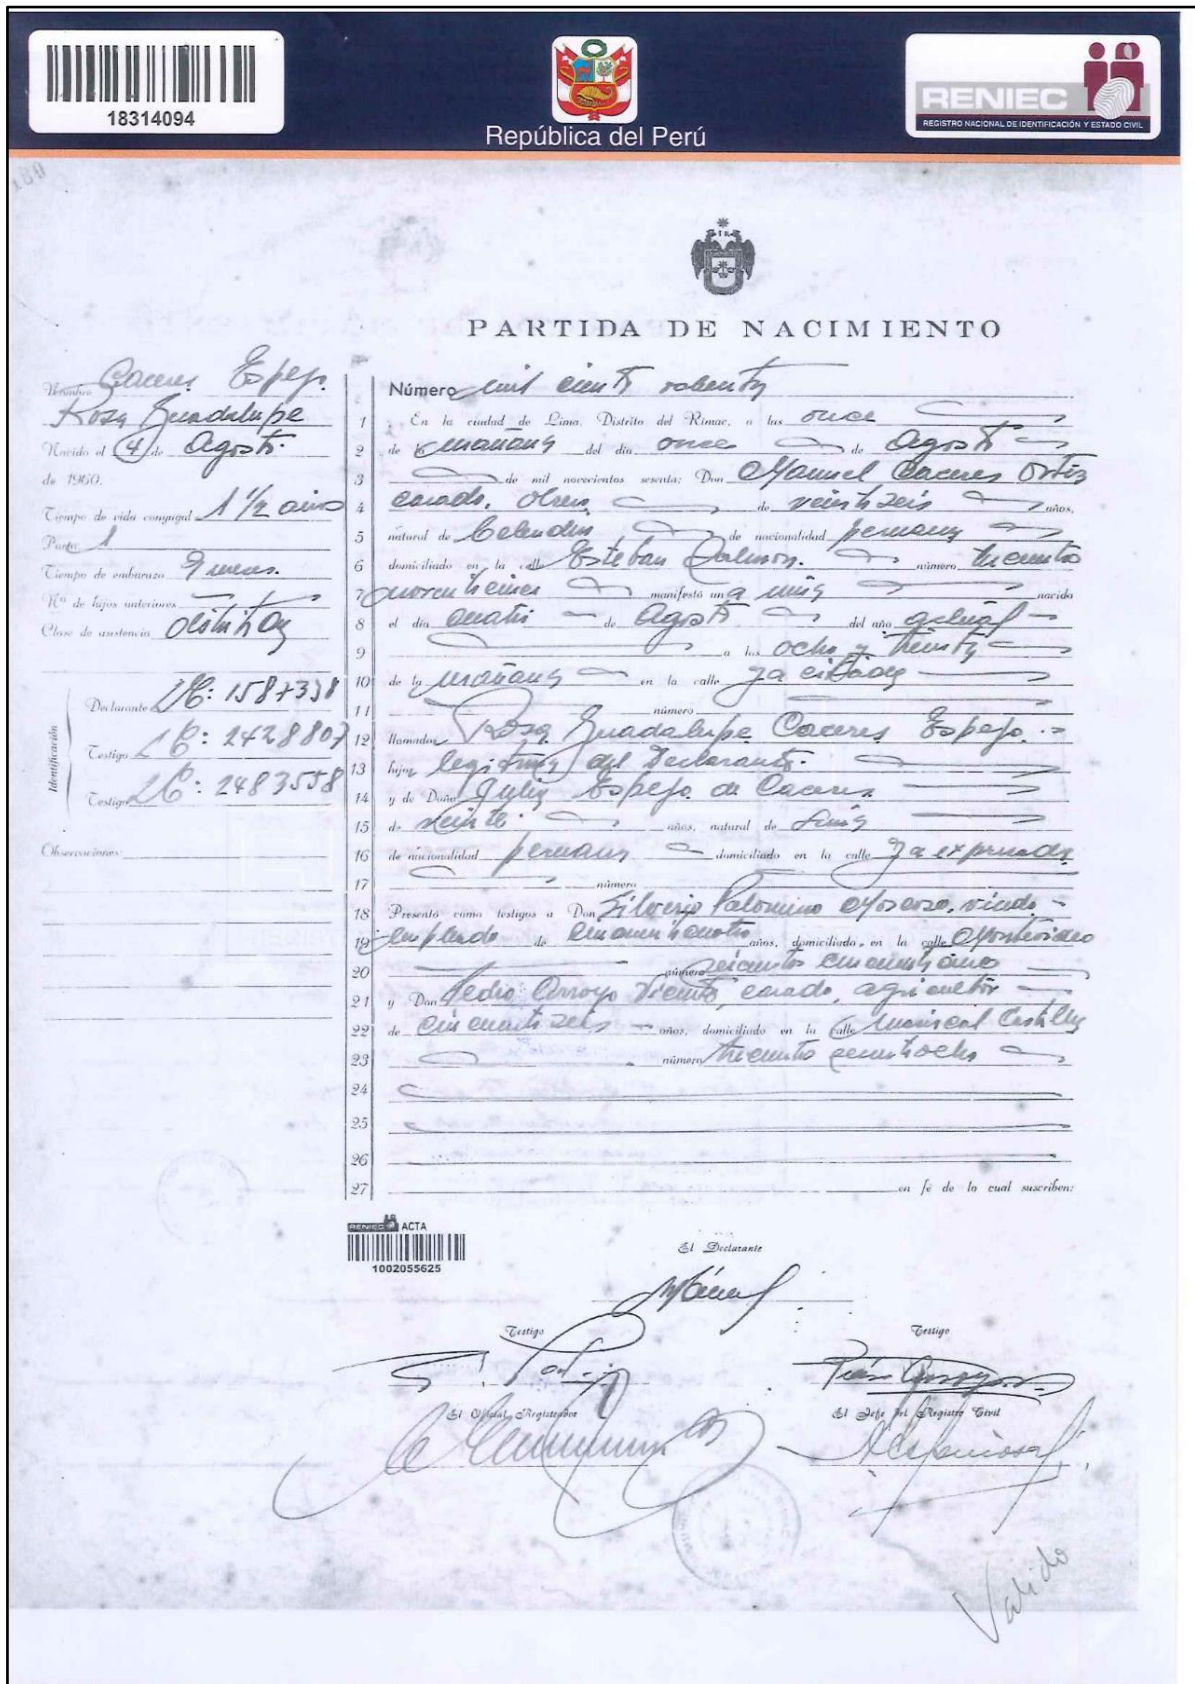 18314094
República del Perú
RENIEC
REGISTRO NACIONAL DE IDENTIFICACIÓN Y ESTADO CIVIL
180
PARTIDA DE NACIMIENTO
Nombre Caceres Espejo
Rosa Guadalupe
Nacido el 4 de Agosto
de 1960.
Tiempo de vida conyugal 1 1/2 años
Parto 1
Tiempo de embarazo 9 meses.
Nº de hijos anteriores
Clase de asistencia
Identificación
Declarante LE: 1587338
Testigo LE: 2428807
Testigo LE: 2483558
Observaciones:
Número mil ciento
1 En la ciudad de Lima, Distrito del Rímac, a las once
2 de la mañana del día once de Agosto
3 de mil novecientos sesenta; Don Manuel Caceres Ortiz
4 casado, obrero de veintiseis años,
5 natural de Celendin, de nacionalidad peruana
6 domiciliado en la calle Esteban Salmon. número trescientos
7 manifestó una niña nacido
8 el día cuatro de Agosto del año actual
9 a las ocho y treinta
10 de la mañana en la calle ya citada
11 número
12 llamado Rosa Guadalupe Caceres Espejo.
13 hija legitima del Declarante.
14 y de Doña Julia Espejo de Caceres
15 de veinte años, natural de Lima
16 de nacionalidad peruana domiciliado en la calle ya expresada
17 número
18 Presentó como testigos a Don Silverio Palomino viudo
19 empleado de cincuenticuatro años, domiciliado, en la calle Montevideo
20 número
21 y Don Pedro Arroyo Vicuña, casado, agricultor
22 de cincuentiseis años, domiciliado en la calle Mariscal Castilla
23 número trescientos
24
25
26
27 en fé de lo cual suscriben:
RENIEC ACTA
1002055625
El Declarante
Testigo
Testigo
El Oficial Registrador
El Jefe del Registro Civil
Valido